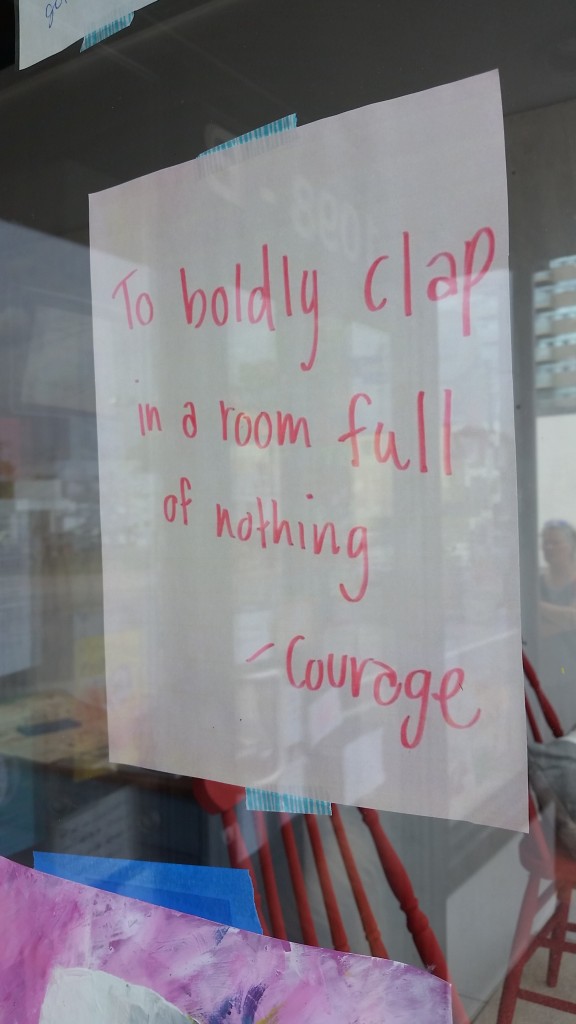 To boldly clap
in a room full
of nothing
- Courage